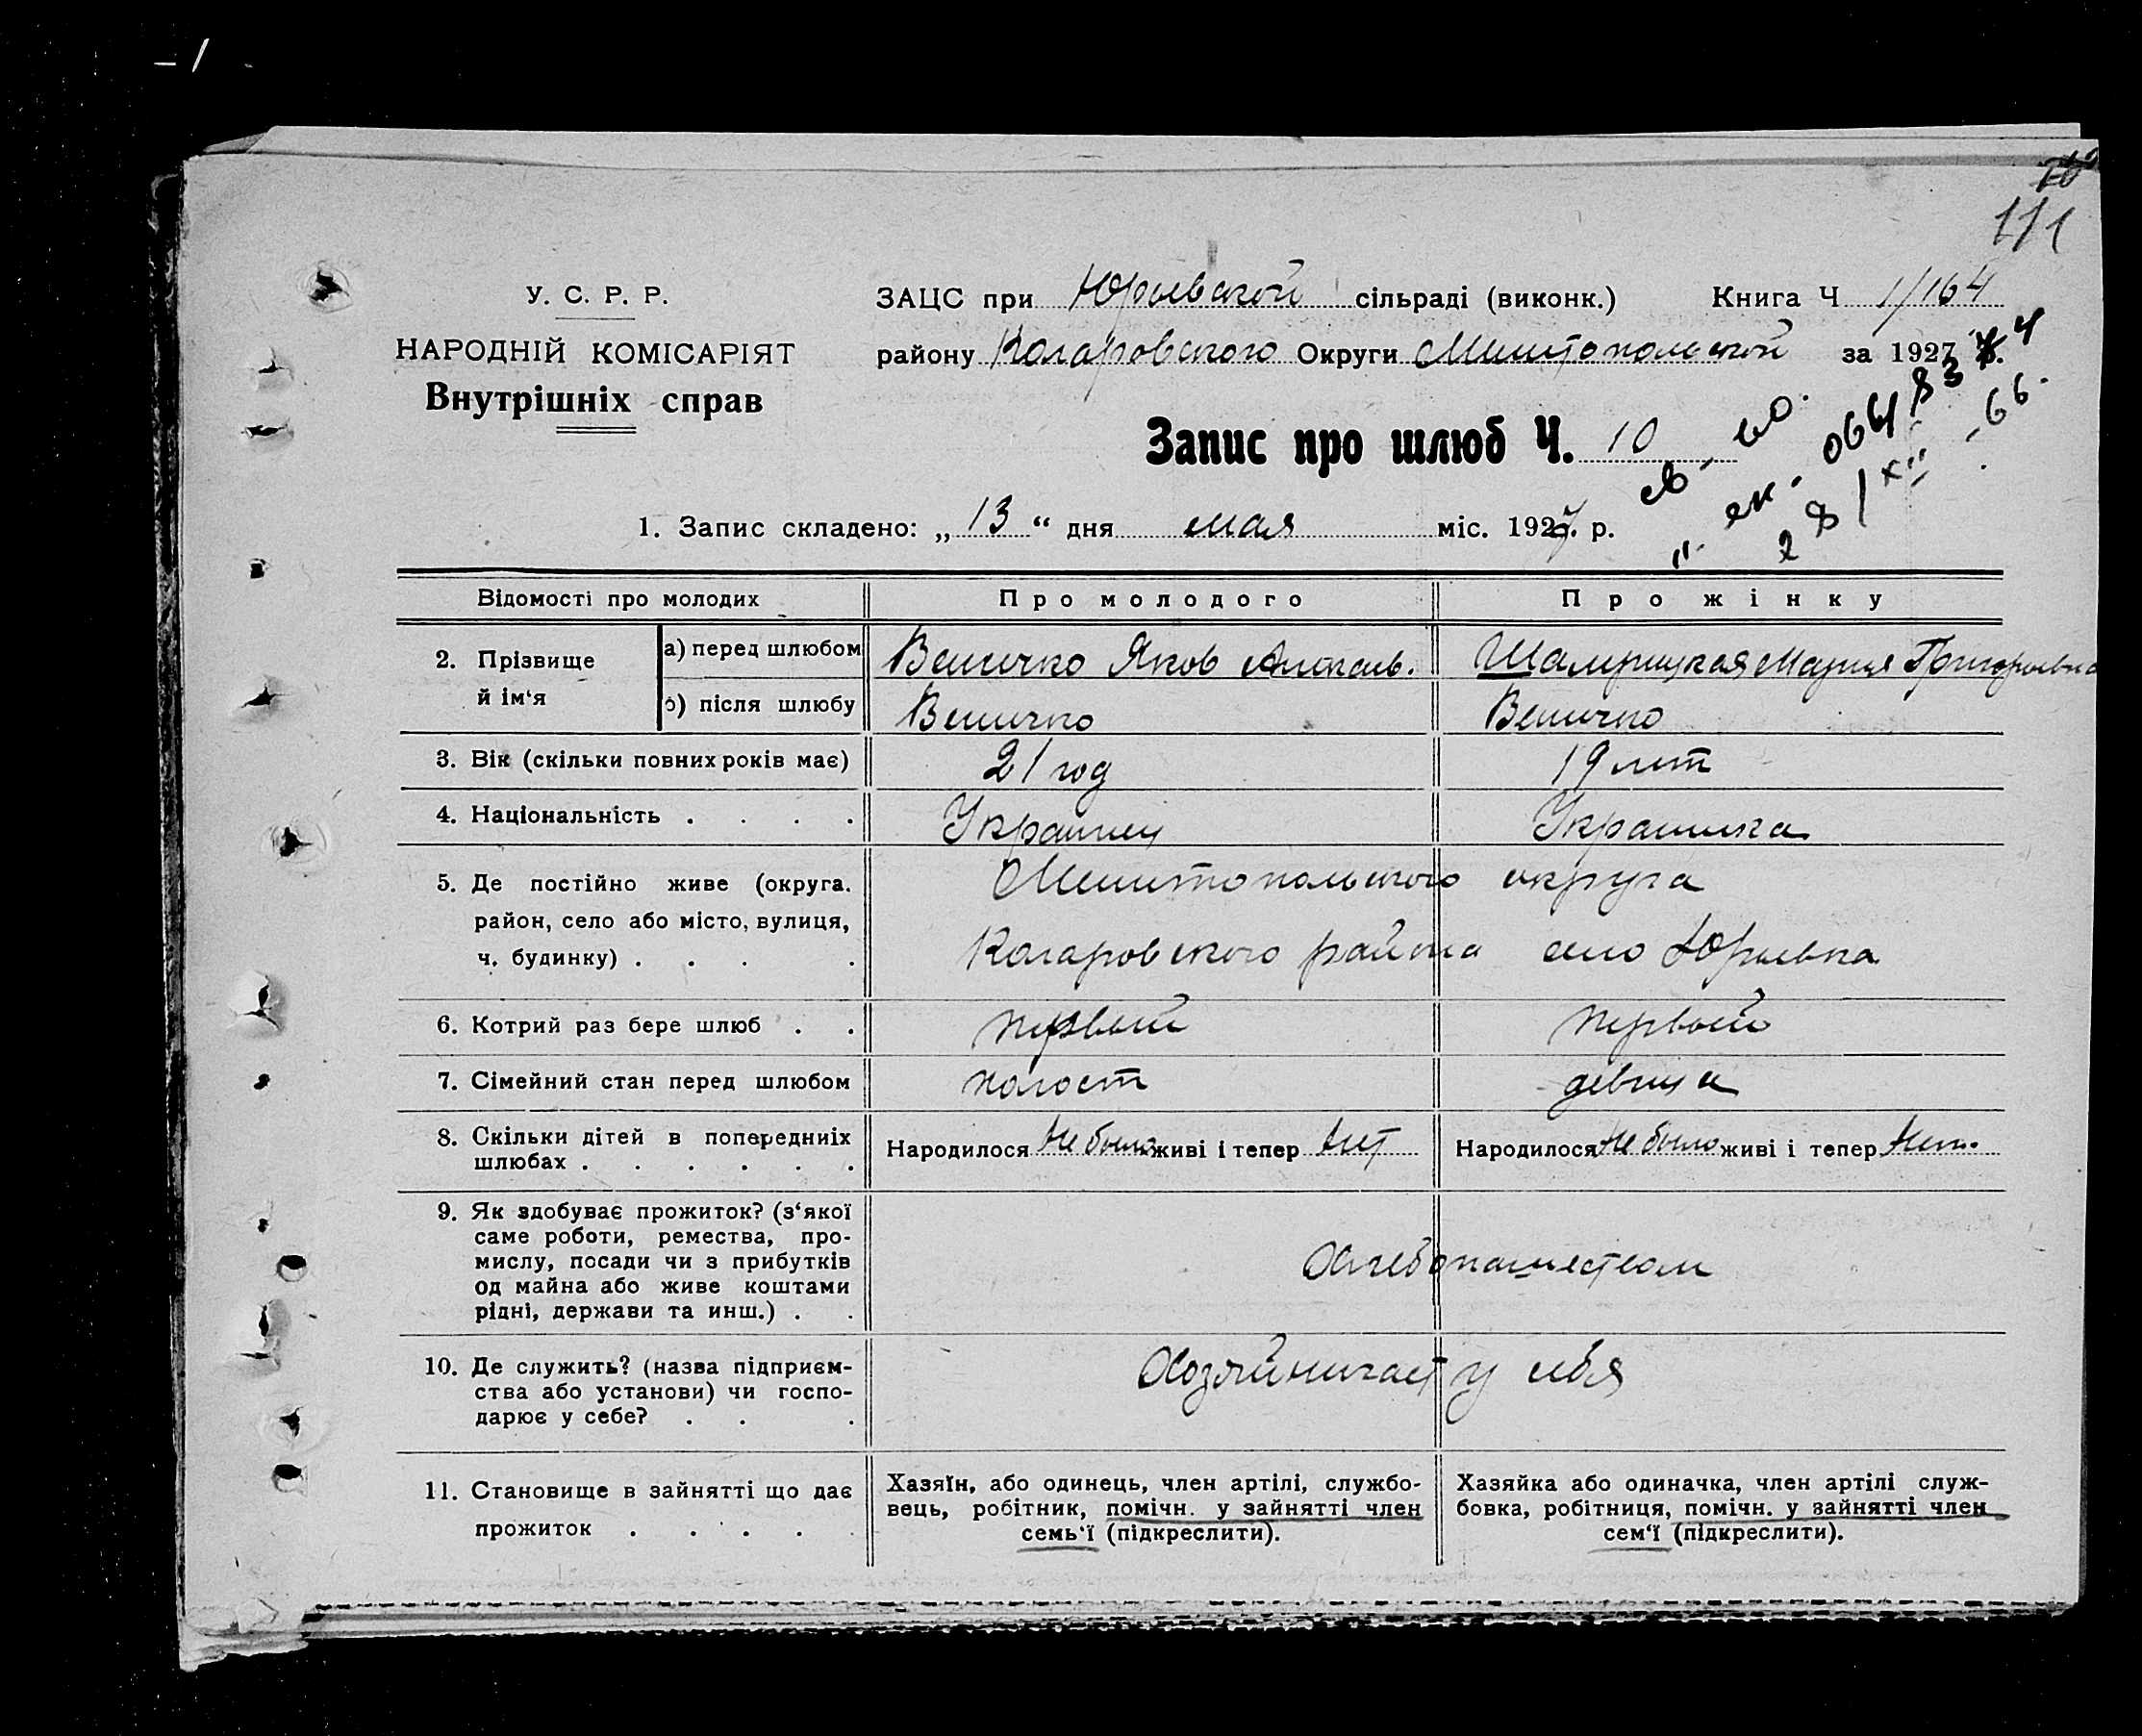 111
У. С. Р. Р.
НАРОДНІЙ КОМІСАРІЯТ
Внутрішніх справ
ЗАЦС при Юрьевской сільраді (виконк.) Книга Ч 1/164
району Коларовского Округи Мелитопольской за 1927
Запис про шлюб Ч. 10
1. Запис складено: „13“ дня мая міс. 1927 р.
Відомості про молодих Про молодого Про жінку
2. Прізвище й ім‘я
а) перед шлюбом Величко Яков Алексеев. Шамрицкая Мария Григорьевна
б) після шлюбу Величко Величко
3. Вік (скільки повних років має) 21 год 19 лет
4. Національність . . . . Украинец Украинка
5. Де постійно живе (округа. Мелитопольского округа
район, село або місто, вулиця, Коларовского района село Юрьевка
ч. будинку) . . . .
6. Котрий раз бере шлюб . . первый первый
7. Сімейний стан перед шлюбом холост девица
8. Скільки дітей в попередниіх Народилося Не было живі і тепер Нет Народилося Не было живі і тепер Нет.
шлюбах . . . . . .
9. Як здобуває прожиток? (з‘якої
саме роботи, ремества, про-
мислу, посади чи з прибутків Хлебопашеством
од майна або живе коштами
рідні, держави та инш.) . .
10. Де служить? (назва підприєм- Хозяйничает у себя
ства або установи) чи госпо-
дарює у себе? . . .
11. Становище в зайнятті що дає
прожиток . . . . .
Хазяїн, або одинець, член артілі, службо-
вець, робітник, помічн. у зайнятті член
семь‘ї (підкреслити).
Хазяйка або одиначка, член артілі служ-
бовка, робітниця, помічн. у зайнятті член
сем‘ї (підкреслити).